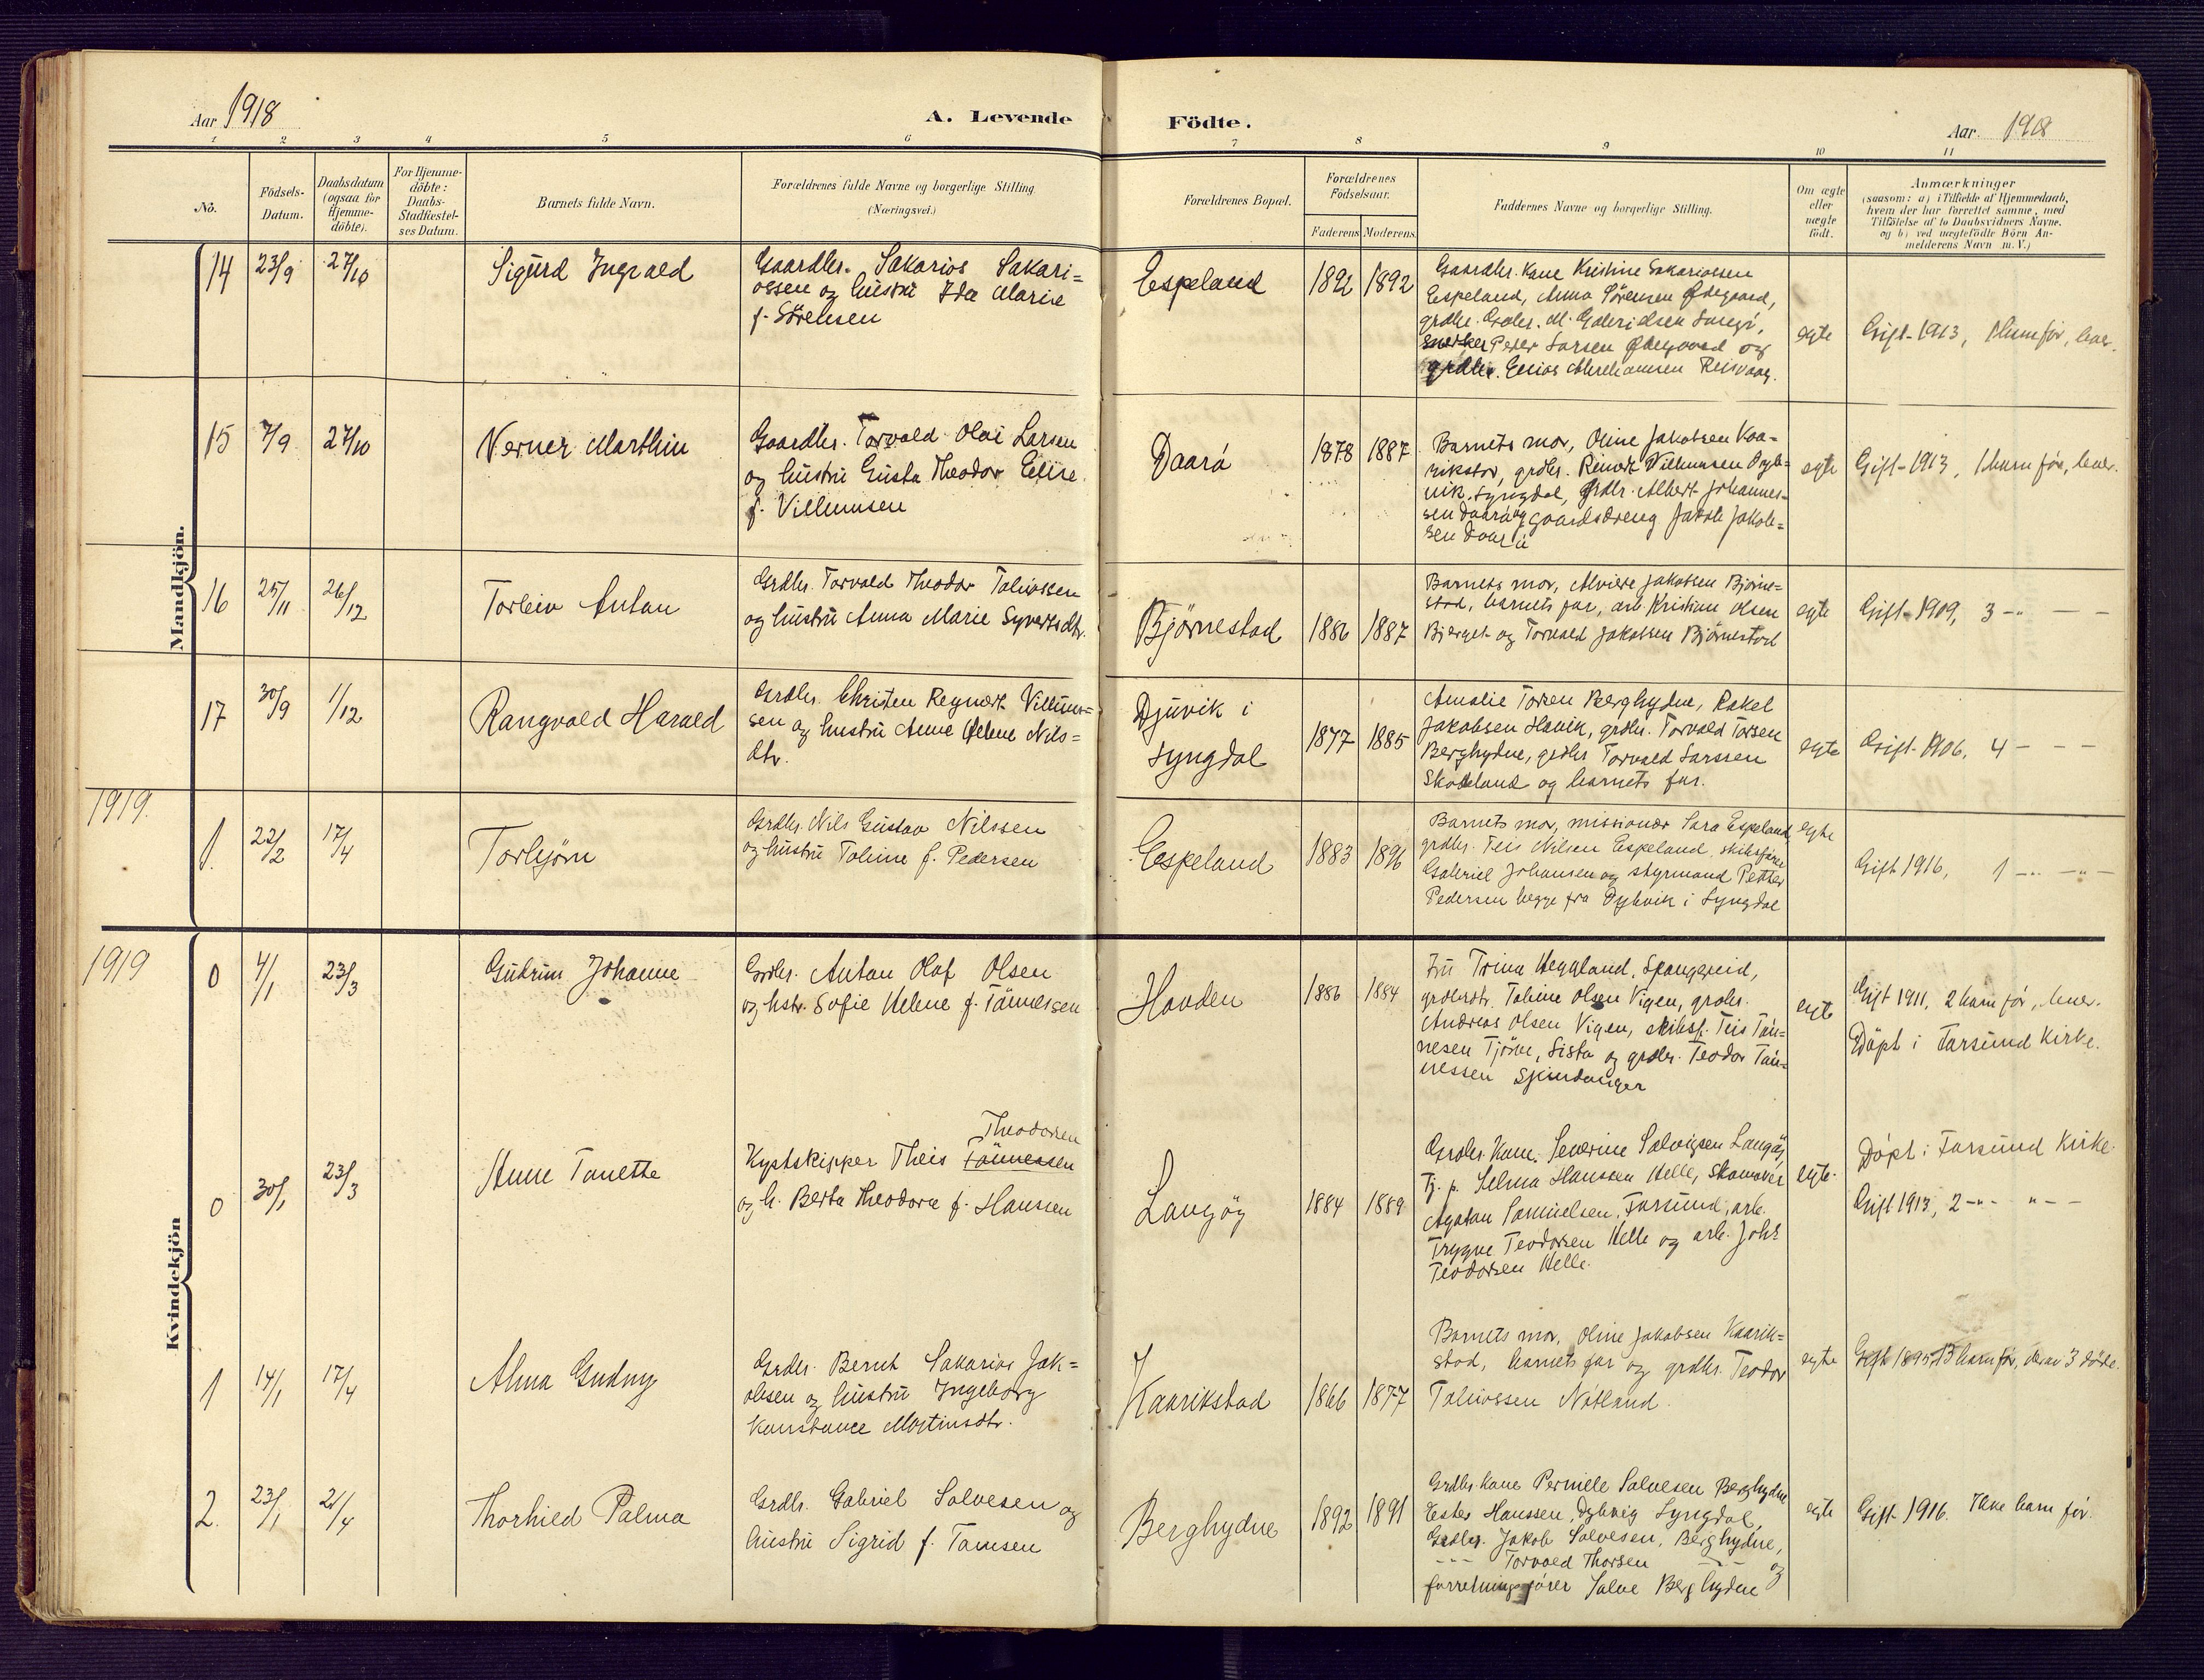 Aar 1918
A. Levende
Födte.
Aar 1918
1 2 3 4 5 6 7 8 9 10 11
No.
Födsels-
Datum.
Daabsdatum
(ogsaa for
Hjemme-
döbte).
For Hjemme-
döbte:
Daabs-
Stadfestel-
ses Datum.
Barnets fulde Navn.
Forældrenes fulde Navne og borgerlige Stilling
(Næringsvei.)
Forældrenes Bopæl.
Forældrenes
Födselsaar.
Faderens Moderens
Faddernes Navne og borgerlige Stilling.
Om ægte
eller
uægte
födt.
Anmærkninger
(saasom: a) i Tilfælde af Hjemmedaab,
hvem der har forrettet samme, med
Tilföielse af to Daabsvidners Navne.
og b) ved uægtefödte Börn An-
melderens Navn m. V.)
Mandkjön.
14
23/9
27/10
Sigurd Ingvald
Gaardbr. Sakarias Sakari=
assen og hustru Ida Marie
f. Sörensen
Espeland
1892 1892
Gaardbr. kone Kristine Sakariassen
Espeland, Anna Sörensen Ødegaard,
Peder Larsen Ødegaard og
grdbr. Elias
egte
Gift 1913, 1 barn för, lever.
15
7/9
27/10
Verner Marthin
Gaardbr. Torvald Olai Larsen
og hustru Gusta Theodor Elise
f. Villumsen
Daarå
1878 1887
Barnets mor, Oline Jakobsen Kaa=
rikstad, grdbr. Reinert Villumsen Dybe=
vik, Lyngdal, Grdbr. Albert Johannes=
sen Daarå og gaardsdreng Jakob Jakob=
sen Daarå
egte
Gift 1913, 1 barn för, lever.
16
25/11
26/12
Torleiv Anton
Grdbr. Torvald Theodor Tobiassen
og hustru Anna Marie Syvertsdtr.
Björnestad
1886 1887
Barnets mor, Alvilde Jakobsen Björne=
stad, barnets far, arb. Kristian Olsen
Bjerget og Torvald Jakobsen Björnestad
egte
Gift 1909, 3 -"- — —
17
30/9
1/12
Rangvald Harald
Grdbr. Christen Regnert Villum=
sen og hustru Anne Helene Nils=
dtr.
Djuvik i
Lyngdal
1877 1885
Amalie Torsen Berghydne, Rakel
Jakobsen Haavik, grdbr. Torvald Torsen
Berghydne, grdbr Torvald Larssen
Skodeland og barnets far.
egte
Gift 1906, 4 — — —
1919.
1.
22/2
17/4
Torbjörn
Grdbr. Nils Gustav Nilssen
og hustru Tobine f. Pedersen
Espeland
1883 1896
Barnets mor, missionær Sara Espeland,
grdbr. Teis Nilsen Espeland, skibsförer
Gabriel Johansen og styrmand Petter
Pedersen begge fra Dybvik i Lyngdal
egte
Gift 1916, 1 -"- -"-
1919
Kvindekjön
0
4/1
23/3
Gudrun Johanne
Grdbr. Anton Olaf Olsen
og hstr. Sofie Helene f. Tönnessen
Hovden
1886 1884
Fru Trina Heggland, Spangereid,
grdbrdtr. Tobine Olsen Vigen, grdbr.
Andreas Olsen Vigen, skibsf. Teis Tön=
nesen Tjörve, Lista og grdbr. Teodor Tön=
nessen Skjindanger
egte
Gift 1911, 2 barn för, lever.
Döpt i Farsund Kirke.
0
30/1
23/3
Anne Tonette
Theodorsen
Kystskipper Theis Tönnessen
og h. Berta Theodora f. Hanssen
Langöy
1884 1889
Grdbr. Kone Severine Salvesen Langöy,
Tj. p. Selma Hanssen Helle, Skomaker
Agaton Samuelsen, Farsund, arb.
Trygve Teodorsen Helle og arb. Johs
Teodorsen Helle.
egte
Döpt i Farsund Kirke.
Gift 1913, 2 -"- "- —
1
14/1
17/4
Alma Gudny
Grdbr. Bernt Sakarias Jak=
obsen og hustru Ingeborg
Konstance Martinsdtr.
Kaarikstad
1866 1877
Barnets mor, Oline Jakobsen Kaarik=
stad, barnets far og grdbr. Teodor
Tobiassen Nötland.
egte
Gift 1895, 13 barn för, derav 3 döde.
2.
23/1
21/4
Thorhild Palma
Grdbr. Gabriel Salvesen og
hustru Sigrid f. Tomsen
Berghydne
1892 1891
Grdbr kone Pernille Salvesen Berghydne
Ester Hanssen, Dybvig Lyngdal,
Grdbr. Jakob Salvesen, Berghydne,
- - - Torvald Thorsen — — og
forretningsförer Salve Berghydne
egte
Gift 1916. Ikke barn för.